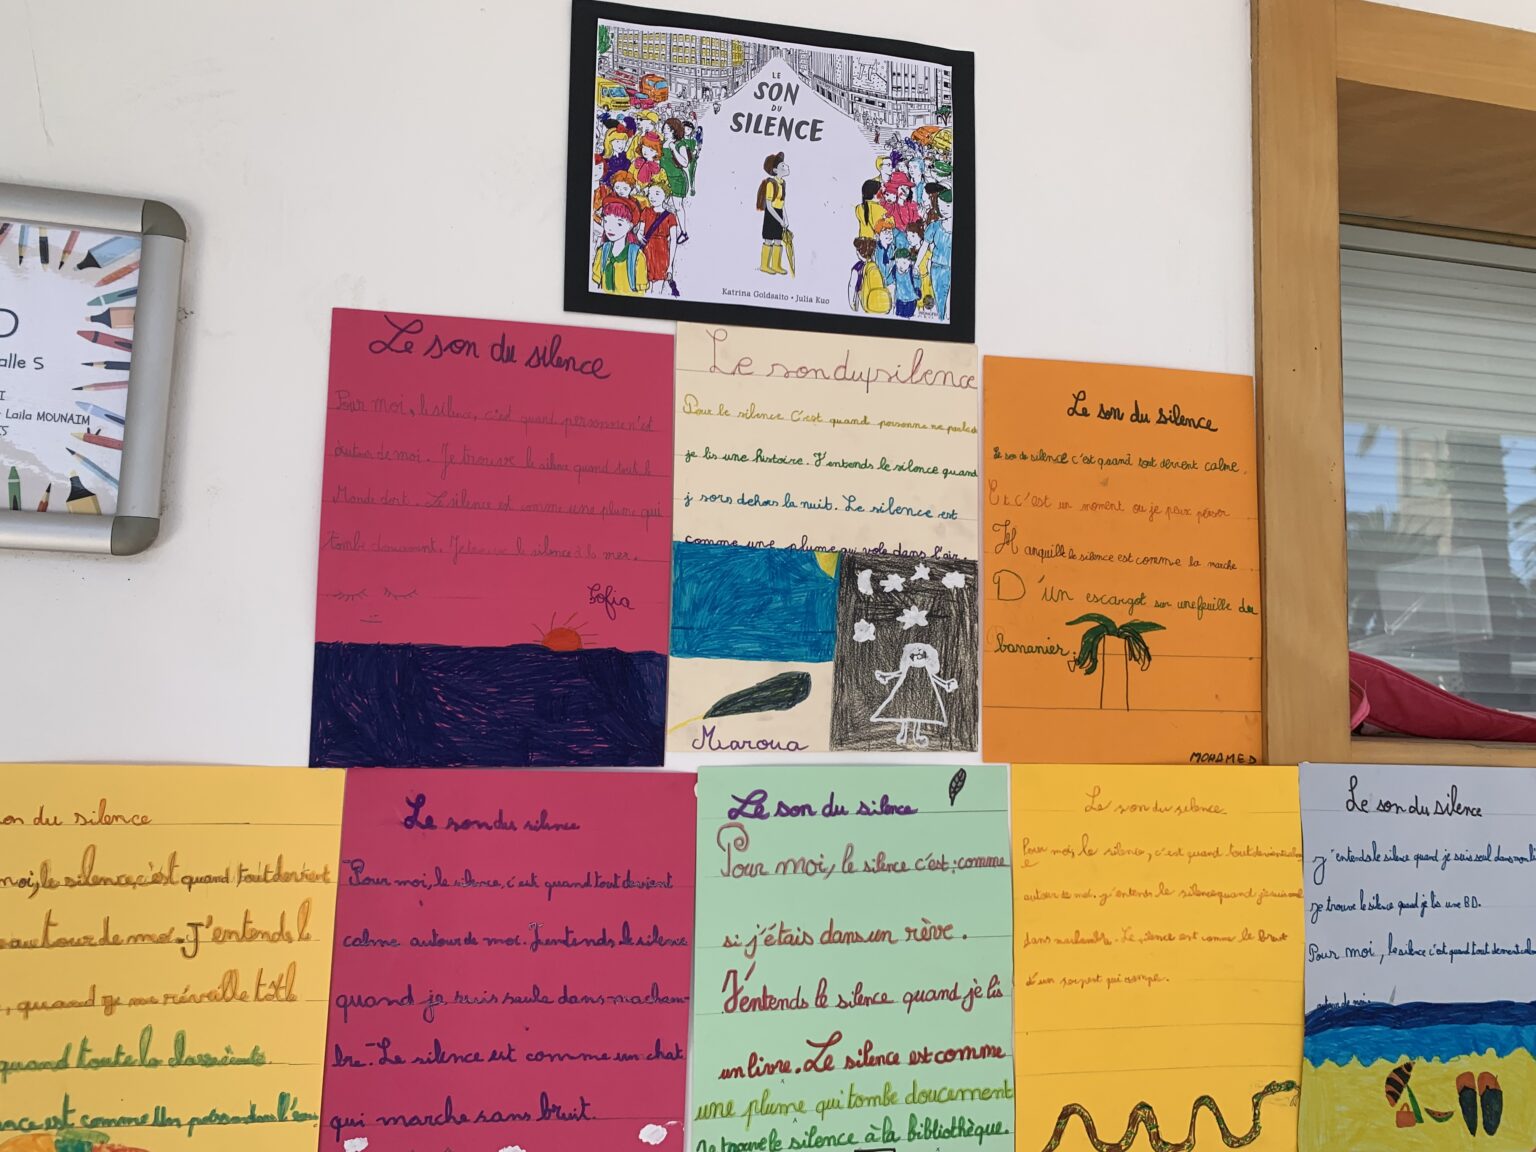 LE
SON
DU
SILENCE
Katrina Goldsaito • Julia Kuo
D
alle S
I
Laila MOUNAIM
S
Le son du silence
Pour moi, le silence, c'est quand personne n'est
autour de moi. Je trouve le silence quand tout le
Monde dort. Le silence est comme une plume qui
tombe doucement. Je trouve le silence à la mer.
Sofia
Le son du silence
Pour le silence C'est quand personne ne parle
je lis une histoire. J'entends le silence quand
j sors dehors la nuit. Le silence est
comme une plume qui vole dans l'air.
Maroua
Le son du silence
Le son de silence c'est quand tout devient calme.
Et c'est un moment ou je peux penser
le silence est comme la marche
D'un escargot sur une feuille de
bananier.
MOHAMED
on du silence
moi, le silence, c'est quand tout devient
autour de moi. J'entends le
, quand je me réveille tôt
quand toute la classe
est comme Un poisson dans l'eau
Le son du silence
Pour moi, le silence, c'est quand tout devient
calme autour de moi. J'entends le silence
quand je suis seule dans ma cham-
bre. Le silence est comme un chat
qui marche sans bruit.
Le son du silence
Pour moi, le silence c'est: comme
si j'étais dans un rêve.
J'entends le silence quand je lis
un livre. Le silence est comme
une plume qui tombe doucement
Je trouve le silence à la bibliothèque.
Le son du silence
Pour moi, le silence, c'est quand tout devient
autour de moi. j'entends le silence quand je suis
dans ma chambre. Le silence est comme le bruit
d'un serpent qui rampe.
Le son du silence
J'entends le silence quand je suis seul dans mon
je trouve le silence quand je lis une BD.
Pour moi, le silence c'est quand tout devient
autour de moi.